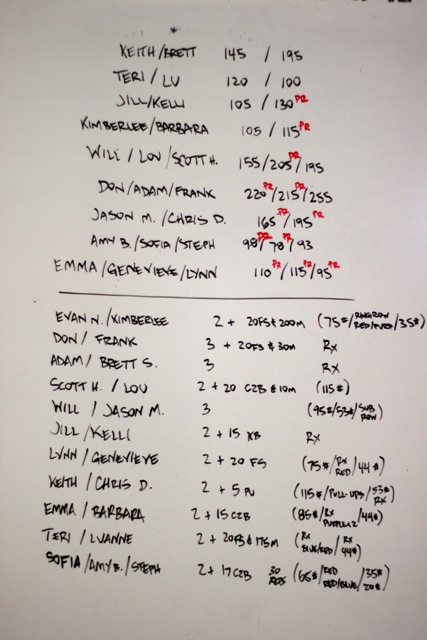 *
KEITH/BRETT 145 / 195
TERI / LU 120 / 100
JILL/KELLI 105 / 130 PR
KIMBERLEE/BARBARA 105 / 115 PR
WILL / LOU / SCOTT H. 155/205 PR/195
DON/ADAM/FRANK 220 PR/215 PR/255
JASON M. / CHRIS D. 165 PR / 195 PR
AMY B. /SOFIA/STEPH 98 PR/ 78 PR/ 93
EMMA/GENEVIEVE/LYNN 110 PR/115 PR/95 PR
EVAN N. /KIMBERLEE 2 + 20FS & 200M (75#/RINGROW RED/ /35#)
DON / FRANK 3 + 20FS & 30M RX
ADAM/ BRETT S. 3 RX
SCOTT H. / LOU 2 + 20 C2B & 10M (115#)
WILL / JASON M. 3 (95#/53#/SUB ROW)
JILL/KELLI 2 + 15 KB RX
LYNN/GENEVIEVE 2 + 20 FS (75#/RX RED/44#)
KEITH/CHRIS D. 2 + 5 PU (115#/PULL-UPS/53# RX)
EMMA/ BARBARA 2 + 15 C2B (85#/RX PURPLEx2/44#)
TERI / LUANNE 2 + 20FS & 175M (RX BLUE/RED / RX 44#)
SOFIA/AMY B. /STEPH 2+ 17 C2B 30 REPS (65#/RED RED/BLUE/35# 20#)